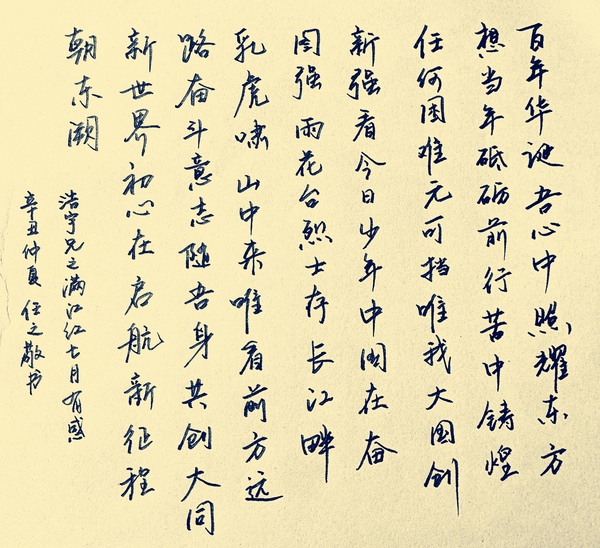 百年华诞吾心中照耀东方
想当年砥砺前行苦中铸煌
任何困难无可挡唯我大国创
新强看今日少年中国在奋
图强雨花台烈士存长江畔
乳虎啸山中来唯看前方远
路奋斗意志随吾身共创大同
新世界初心在启航新征程
朝东溯
浩宇兄之满江红七月有感
辛丑仲夏 任之敬书